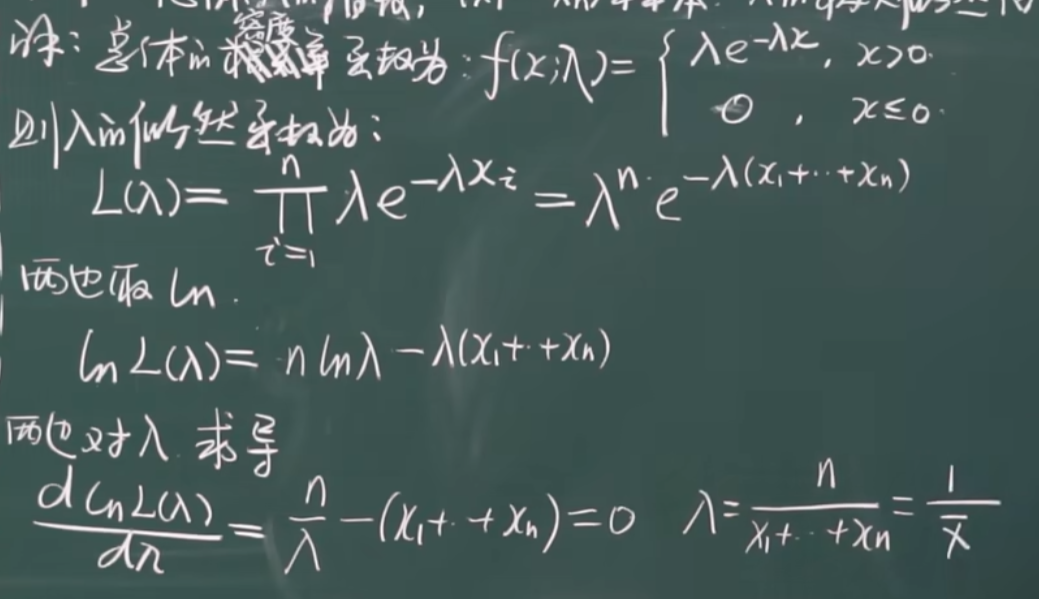 解：总体的密度函数为：f(x;λ)= { λe^{-λx}, x>0. 0, x≤0.
则λ的似然函数为：
L(λ)= ∏_{i=1}^{n} λe^{-λx_i} = λ^n·e^{-λ(x₁+··+x_n)}
两边取ln.
ln L(λ)= n lnλ -λ(x₁+··+x_n)
两边对λ求导
d ln L(λ)/dλ = n/λ -(x₁+··+x_n)=0 λ= n/(x₁+··+x_n) = 1/x̄